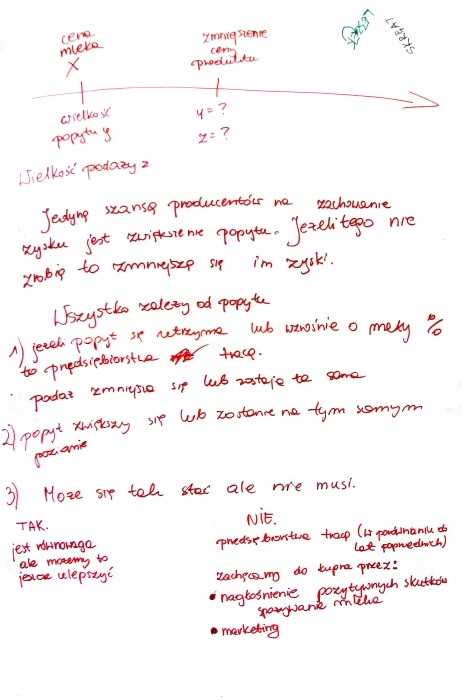 cena
mleka
X
zmniejszenie
ceny
produktu
LESZEK
SKRĘCAJ
wielkość
popytu y
y = ?
z = ?
Wielkość podaży z
Jedyną szansą producentów na zachowanie
zysku jest zwiększenie popytu. Jeżeli tego nie
zrobią to zmniejszą się im zyski.
Wszystko zależy od popytu
1) jeżeli popyt się utrzyma lub wzrośnie o mały %
to przedsiębiorstwa tracą.
podaż zmniejsza się lub zostaje ta sama
2) popyt zwiększy się lub zostanie na tym samym
poziomie
3) Może się tak stać ale nie musi.
TAK.
jest równowaga
ale możemy to
jeszcze ulepszyć
NIE.
przedsiębiorstwa tracą (w porównaniu do
lat poprzednich)
zachęcamy do kupna przez:
• nagłośnienie pozytywnych skutków
spożywania mleka
• marketing